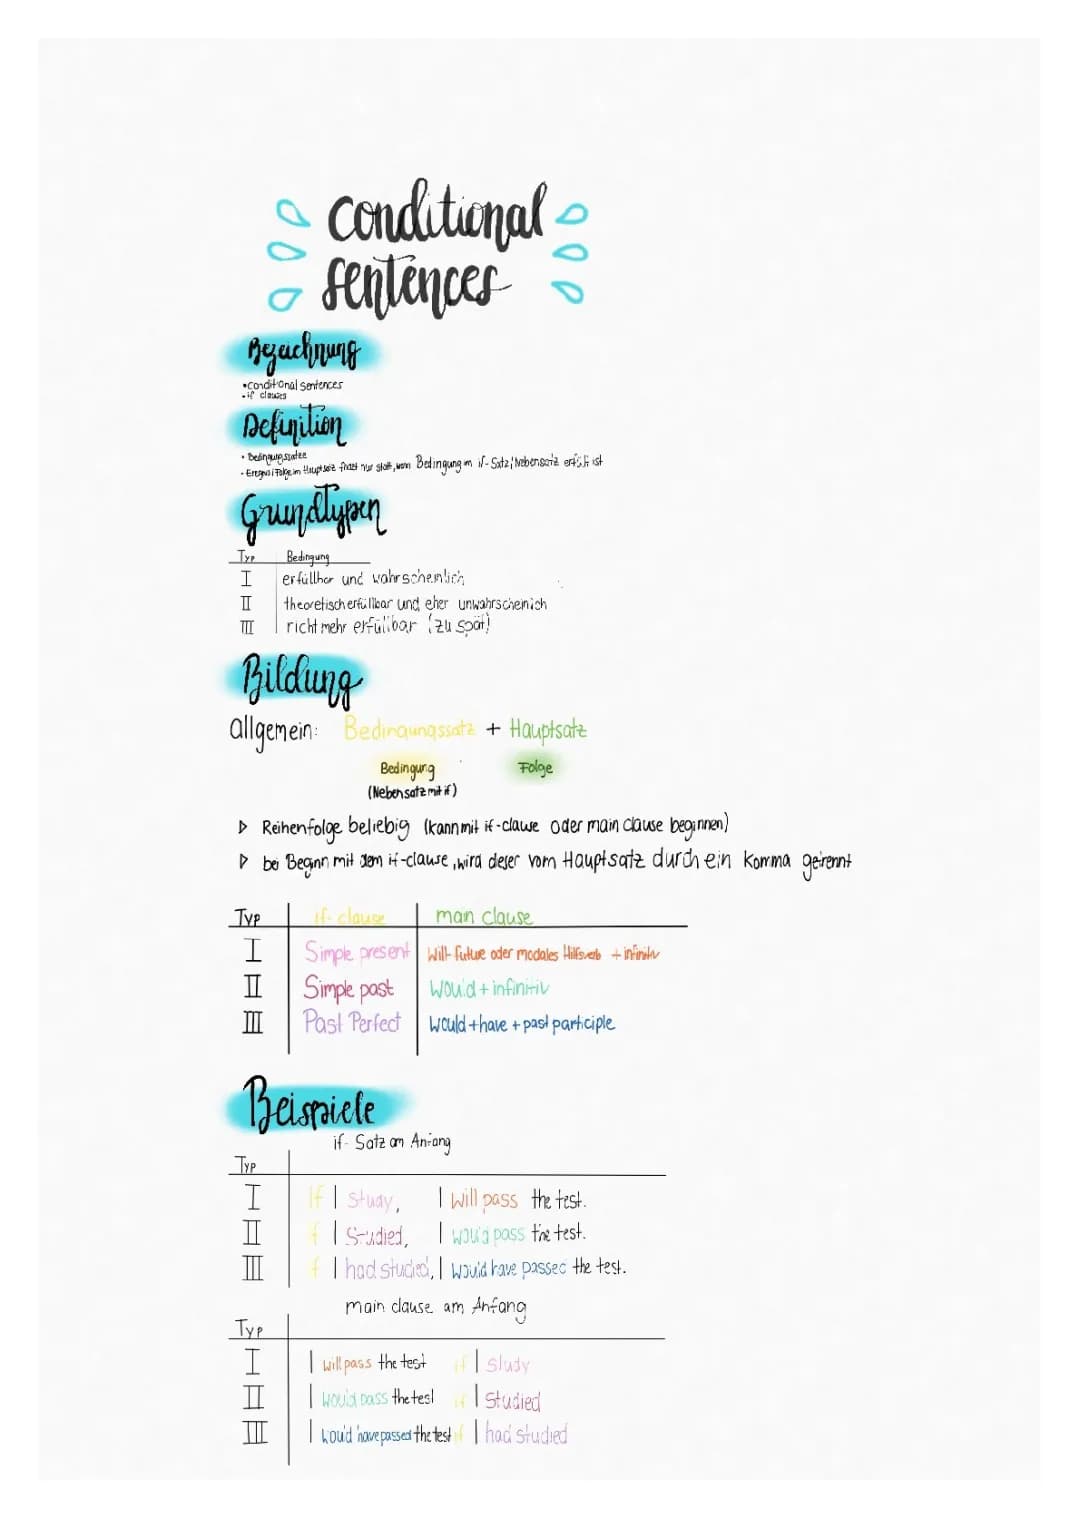 conditional
sentences
Bezeichnung
•conditional sentences
•if clauses
Definition
• Bedingungssätze
• Ereignis/Folge im Hauptsatz findet nur statt, wenn Bedingung im if-Satz/Nebensatz erfüllt ist
Grundtypen
Typ Bedingung
I erfüllbar und wahrscheinlich
II theoretisch erfüllbar und eher unwahrscheinlich
III nicht mehr erfüllbar (zu spät)
Bildung
allgemein: Bedingungssatz + Hauptsatz
Bedingung Folge
(Nebensatz mit if)
▷ Reihenfolge beliebig (kann mit if-clause oder main clause beginnen)
▷ bei Beginn mit dem if-clause, wird dieser vom Hauptsatz durch ein Komma getrennt
Typ if-clause main clause
I Simple present Will-future oder modales Hilfsverb + infinitiv
II Simple past Would + infinitiv
III Past Perfect Would + have + past participle
Beispiele
if-Satz am Anfang
Typ
I If I study, I will pass the test.
II if I Studied, I would pass the test.
III if I had studied, I would have passed the test.
main clause am Anfang
Typ
I I will pass the test if I study
II I would pass the test if I Studied
III I would have passed the test if I had studied